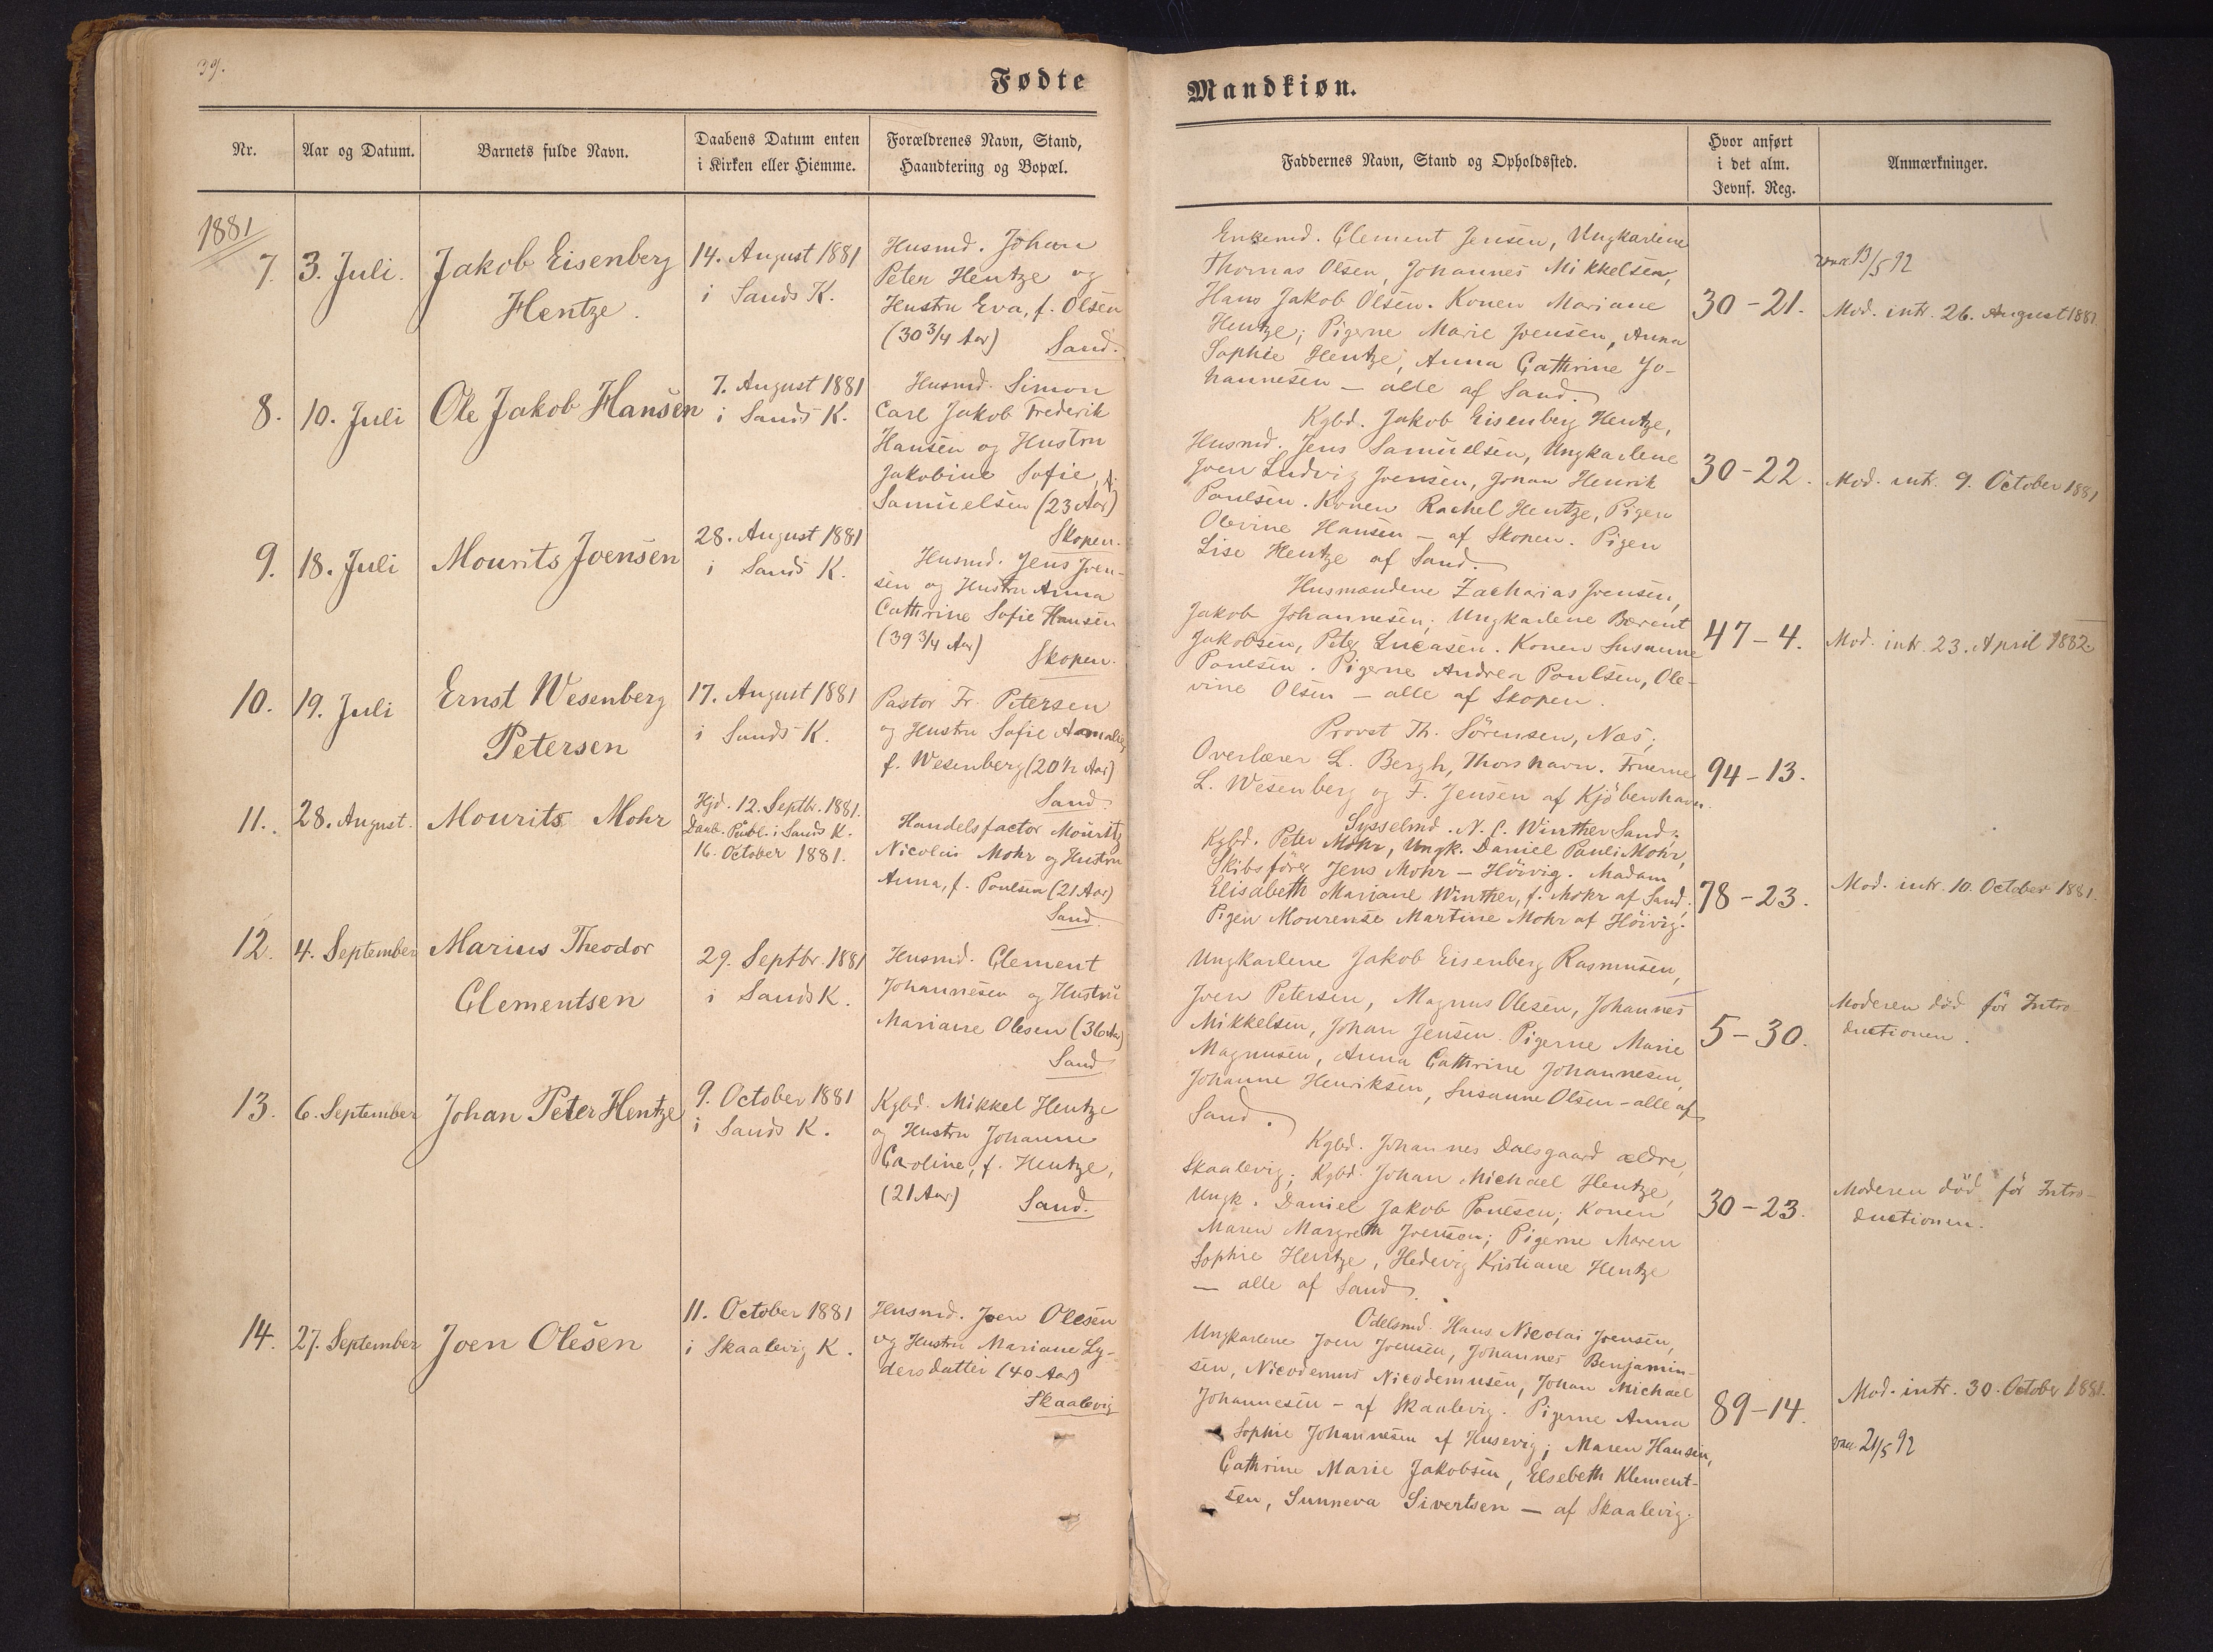 39.
Fødte
Nr.
Aar og Datum.
Barnets fulde Navn.
Daabens Datum enten
i Kirken eller Hiemme.
Forældrenes Navn, Stand,
Haandtering og Bopæl.
1881
7. 3. Juli. Jakob Eisenberg
Hentze.
14. August 1881
i Sands K.
Husmd. Johan
Peter Hentze og
Hustru Eva, f. Olsen
(30 3/4 Aar) Sand.
8. 10. Juli Ole Jakob Hansen
7. August 1881
i Sands K.
Husmd. Simon
Carl Jakob Frederik
Hansen og Hustru
Jakobine Sofie, f.
Samuelsen (23 Aar)
Skopen.
9. 18. Juli Mourits Joensen
28. August 1881
i Sands K.
Husmd. Jens Joen-
sen og Hustru Anna
Cathrine Sofie Hansen
(39 3/4 Aar)
Skopen.
10. 19. Juli Ernst Wesenberg
Petersen
17. August 1881
i Sands K.
Pastor Fr. Petersen
og Hustru Sofie Amalie,
f. Wesenberg (20 1/2 Aar)
Sand.
11. 28. August. Mourits Mohr
Hjd. 12. Septbr. 1881.
Daab. Publ. i Sands K.
16. October 1881.
Handelsfactor Mourits
Nicolai Mohr og Hustru
Anna, f. Poulsen (21 Aar)
Sand
12. 4. September Marius Theodor
Clementsen
29. Septbr. 1881
i Sands K.
Husmd. Clement
Johannesen og Hustru
Mariane Olesen (36 Aar)
Sand
13. 6. September Johan Peter Hentze
9. October 1881
i Sands K.
Kgbd. Mikkel Hentze
og Hustru Johanne
Caroline, f. Hentze,
(21 Aar) Sand.
14. 27. September Joen Olesen
11. October 1881
i Skaalevig K.
Husmd. Joen Olesen
og Hustru Mariane Ly-
dersdatter (40 Aar)
Skaalevig
Mandkiøn.
Faddernes Navn, Stand og Opholdssted.
Hvor anført
i det alm.
Jevnf. Reg.
Anmærkninger.
Enkemd. Clement Jensen, Ungkarlene
Thomas Olsen, Johannes Mikkelsen,
Hans Jakob Olsen. Konen Mariane
Hentze; Pigerne Marie Joensen, Anna
Sophie Hentze, Anna Cathrine Jo-
hannesen – alle af Sand.
30-21.
vacc. 13/5 92
Mod. intr. 26. August 1881.
Kgbd. Jakob Eisenberg Hentze,
Husmd. Jens Samuelsen, Ungkarlene
Joen Ludvig Joensen, Johan Henrik
Poulsen. Konen Rachel Hentze, Pigen
Olevine Hansen – af Skopen. Pigen
Lise Hentze af Sand.
30-22.
Mod. intr. 9. October 1881
Husmændene Zacharias Joensen,
Jakob Johannesen; Ungkarlene Bærent
Jakobsen, Peter Lucasen. Konen Susanne
Poulsen. Pigerne Andrea Poulsen, Ole-
vine Olsen – alle af Skopen.
47-4.
Mod. intr. 23. April 1882.
Provst Th. Sörensen, Næs;
Overlærer L. Bergh, Thorshavn. Fruerne
L. Wesenberg og F. Jensen af Kjöbenhavn.
94-13.
Sysselmd. N. C. Winther Sand;
Kgbd. Peter Mohr, Ungk. Daniel Pauli Mohr,
Skibsförer Jens Mohr – Höivig. Madam
Elisabeth Mariane Winther, f. Mohr af Sand,
Pigen Mourense Martine Mohr af Höivig.
78-23.
Mod. intr. 10. October 1881.
Ungkarlene Jakob Eisenberg Rasmusen,
Joen Petersen, Magnus Olesen, Johannes
Mikkelsen, Johan Jensen. Pigerne Marie
Magnusen, Anna Cathrine Johannesen,
Johanne Henriksen, Susanne Olsen – alle af
Sand.
5-30.
Moderen död för Intro-
ductionen.
Kgbd. Johannes Dalsgaard ældre,
Skaalevig; Kgbd. Johan Michael Hentze,
Ungk. Daniel Jakob Poulsen; Konen
Maren Margreth Joensen; Pigerne Maren
Sophie Hentze, Hedevig Kristiane Hentze
– alle af Sand.
30-23.
Moderen död för Intro-
ductionen.
Odelsmd. Hans Nicolai Joensen,
Ungkarlene Joen Joensen, Johannes Benjamin-
sen, Nicodemus Nicodemusen, Johan Michael
Johannesen – af Skaalevig. Pigerne Anna
Sophie Johannesen af Husevig; Maren Hansen,
Cathrine Marie Jakobsen, Elsebeth Klement-
sen, Sunneva Sivertsen – af Skaalevig.
89-14.
Mod. intr. 30. October 1881.
vac. 21/5 92